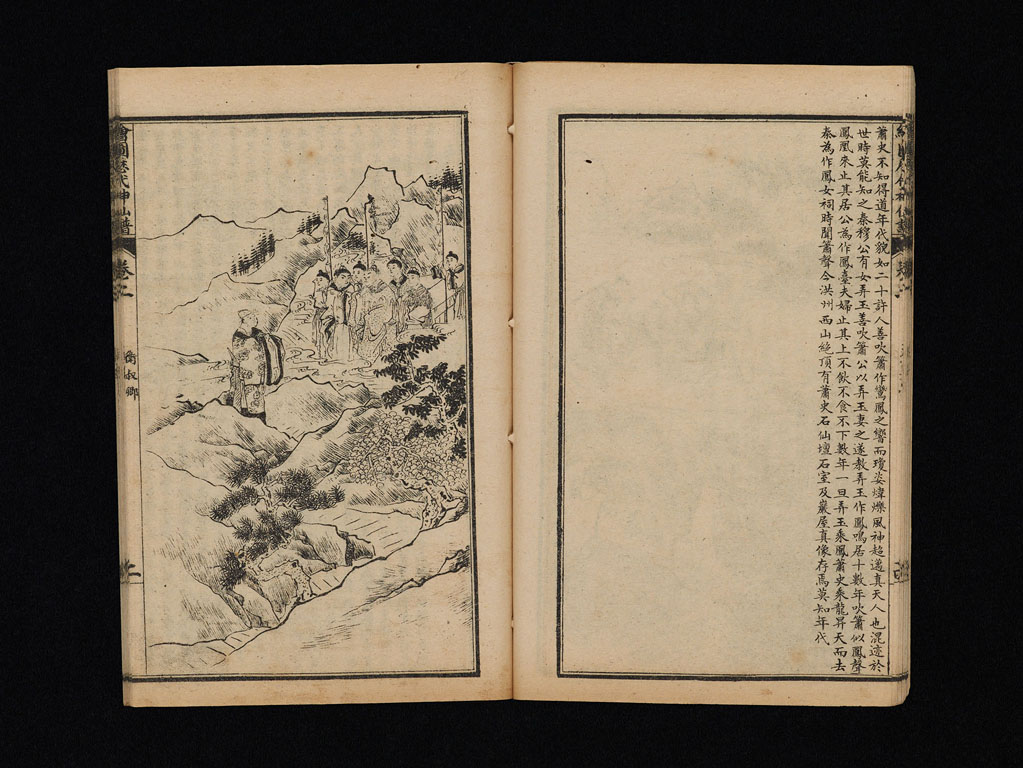 蕭史不知得道年代貌如二十許人善吹簫作鸞鳳之響而瓊姿煒爍風神超邁真天人也混迹於
世時莫能知之秦穆公有女弄玉善吹簫公以弄玉妻之遂教弄玉作鳳鳴居十數年吹簫似鳳聲
鳳凰來止其居公為作鳳臺夫婦止其上不飲不食不下數年一旦弄玉乘鳳蕭史乘龍昇天而去
秦為作鳳女祠時聞簫聲今洪州西山絶頂有蕭史石仙壇石室及巖屋真像存焉莫知年代
繪圖歷代神仙譜
卷二
衛叔卿
二